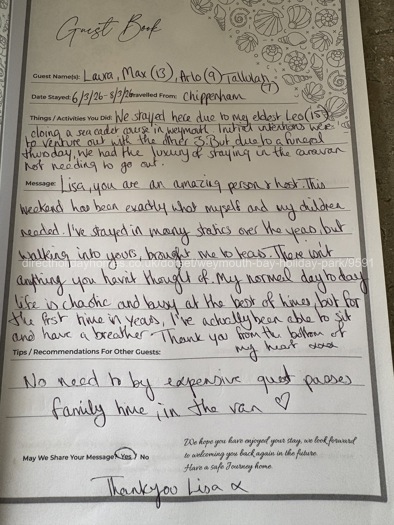 Guest Book
Guest Name(s): Laura, Max (13), Arlo (9) Tallulah
Date Stayed: 6/3/26 - 8/3/26 Travelled From: Chippenham
Things / Activities You Did: We stayed here due to my eldest Leo (15)
doing a sea cadet course in weymouth. Initial intentions were
to venture out with the other 3. But due to a funeral
thursday, we had the luxury of staying in the caravan
not needing to go out.
Message: Lisa, you are an amazing person & host. This
weekend has been exactly what myself and my children
needed. I've stayed in many statics over the years, but
walking into yours, brought me to tears. There isn't
anything you havnt thought of. My normal day to day
life is chaotic and busy at the best of times, but for
the first time in years, I've actually been able to sit
and have a breather. Thank you from the bottom of
my heart xxxx
Tips / Recommendations For Other Guests:
No need to by expensive guest passes
family time, in the van ♡
May We Share Your Message? Yes / No
We hope you have enjoyed your stay, we look forward
to welcoming you back again in the future.
Have a safe Journey home.
Thankyou Lisa x